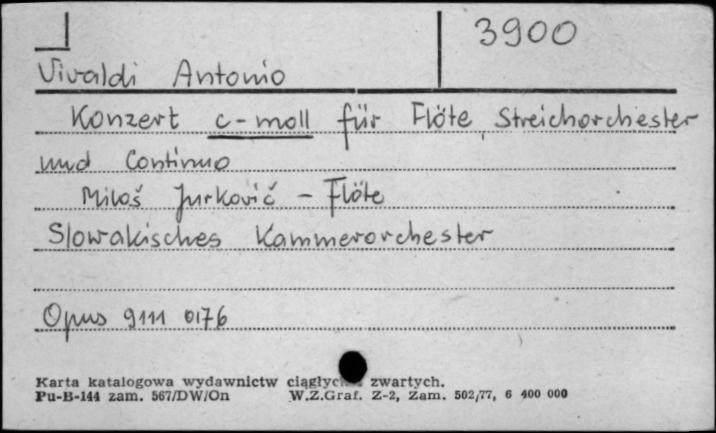 3900
Vivaldi Antonio
Konzert c-moll für Flöte, Streichorchester
und Continuo
Miloš Jurkovič - Flöte
Slowakisches Kammerorchester
Opus 9111 0176
Karta katalogowa wydawnictw ciągłych zwartych.
Pu-B-144 zam. 567/DW/On W.Z.Graf. Z-2, Zam. 502/77, 6 400 000